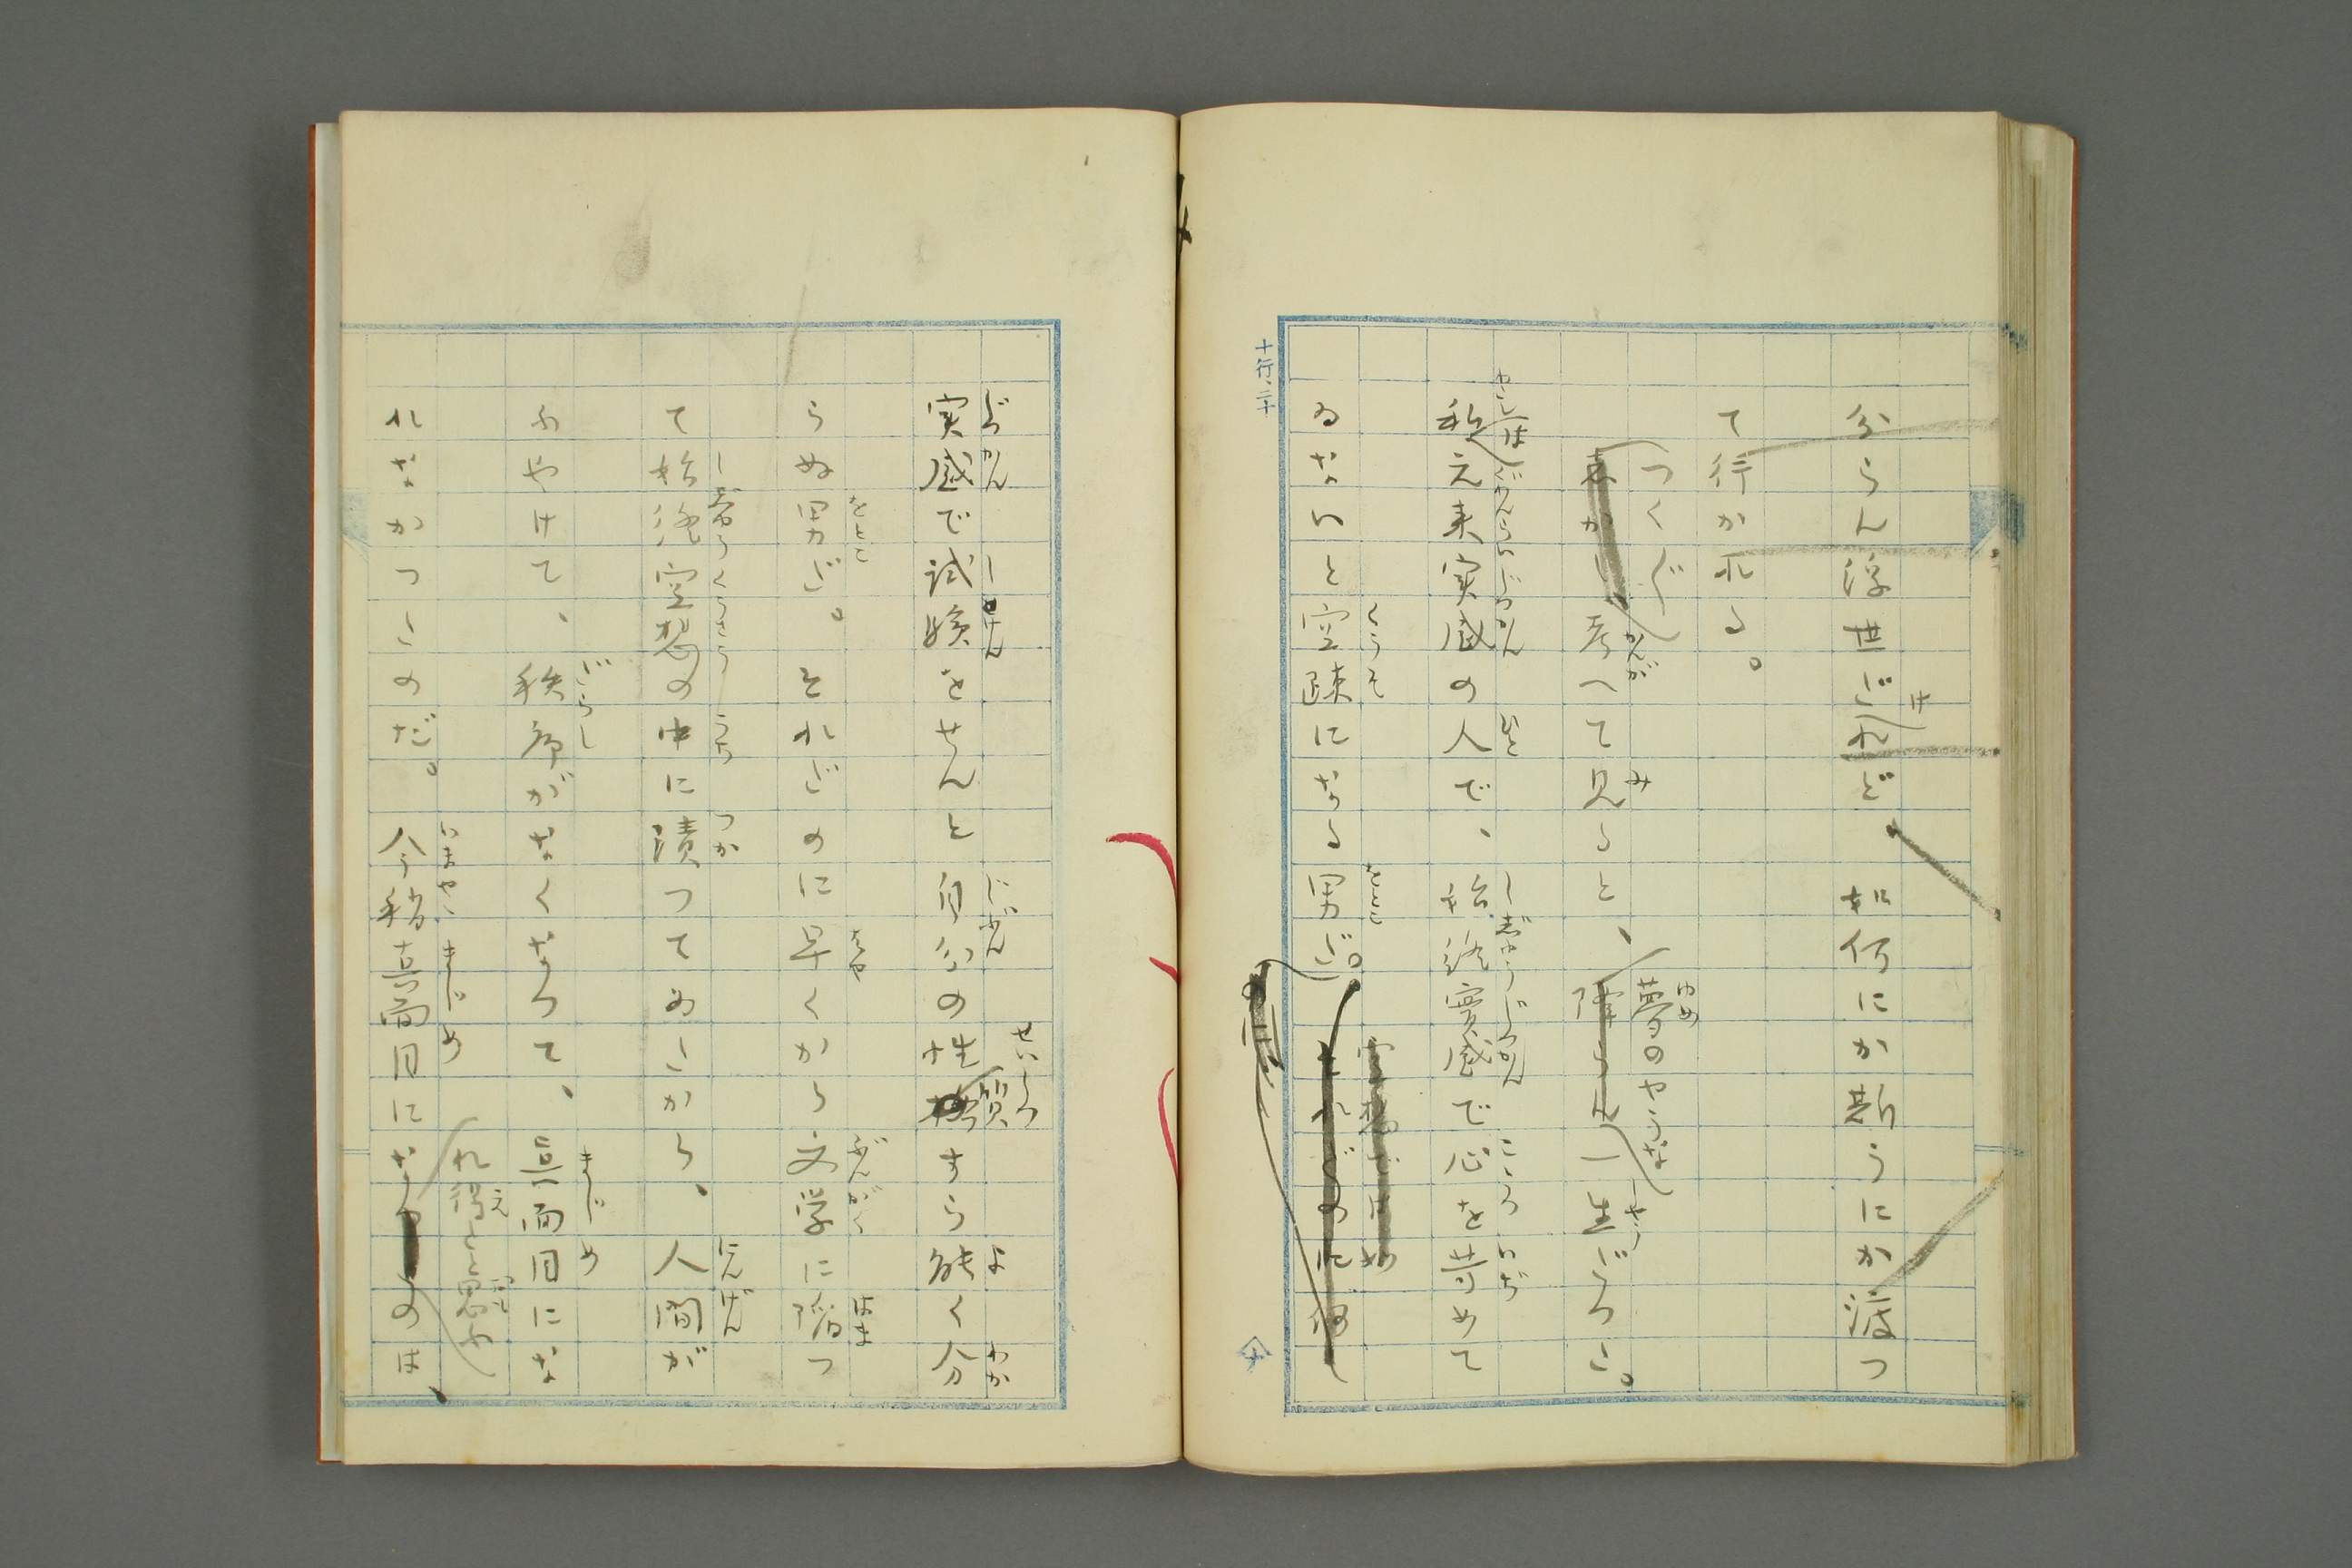 分らん浮世だけれど、如何にか斯うにか渡つ
て行かれる。
つくづく考へて見ると、夢のやうな一生だつた。
私は元来実感の人で、始終実感で心を苛めて
ゐないと空疎になる男だ。
実感で試験をせんと自分の性質すら能く分
らぬ男だ。それだのに早くから文学に陥つ
て始終空想の中に漬つてゐたから、人間が
ふやけて、秩序がなくなつて、真面目にな
れなかつたのだ。今稍真面目になれ得たと思ふのは、
十行、二十